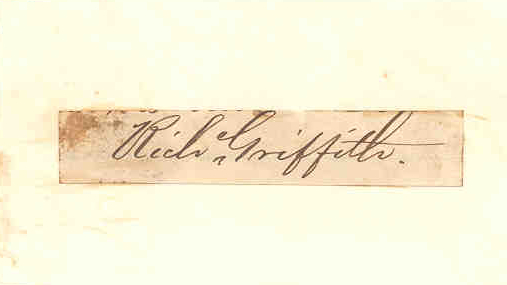 Rich Griffith.